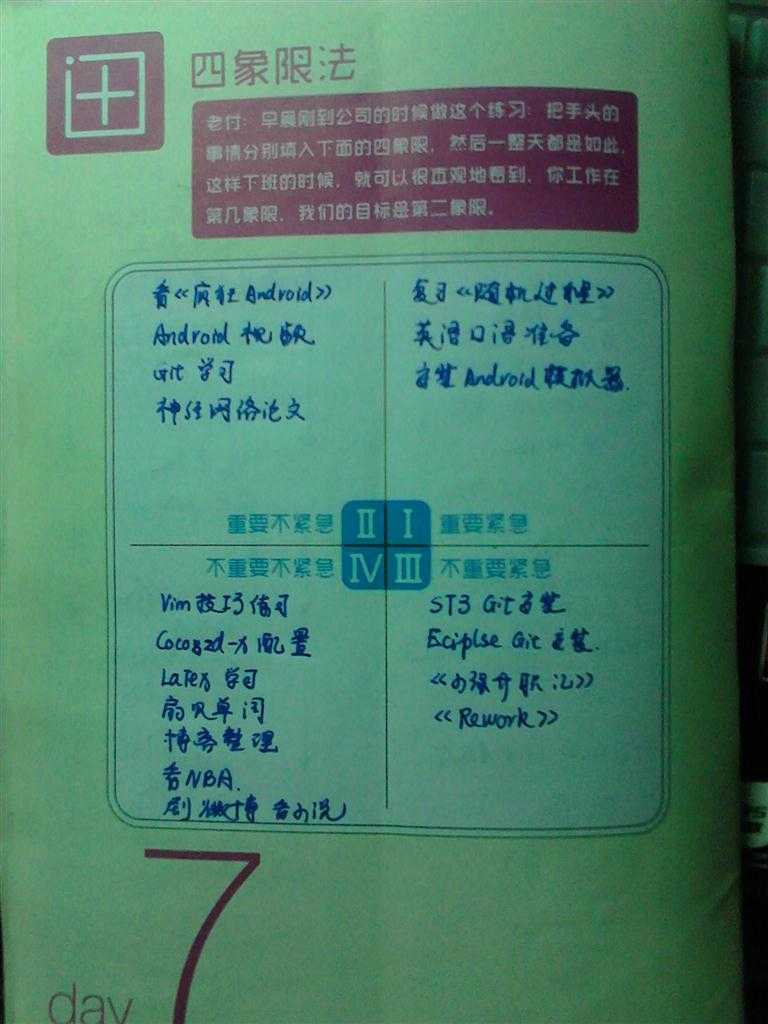 四象限法
老付：早晨刚到公司的时候做这个练习：把手头的
事情分别填入下面的四象限，然后一整天都是如此，
这样下班的时候，就可以很直观地看到，你工作在
第几象限，我们的目标是第二象限。
看《疯狂Android》
Android 视频
Git 学习
神经网络论文
复习《随机过程》
英语口语准备
安装 Android 模拟器.
重要不紧急
II
I
重要紧急
不重要不紧急
IV
III
不重要紧急
Vim技巧练习
Cocos2d-x 配置
LaTex 学习
扇贝单词
博客整理
看NBA.
刷微博 看小说
ST3 Git安装
Eciplse Git 安装.
《小强升职记》
《Rework》
7
day